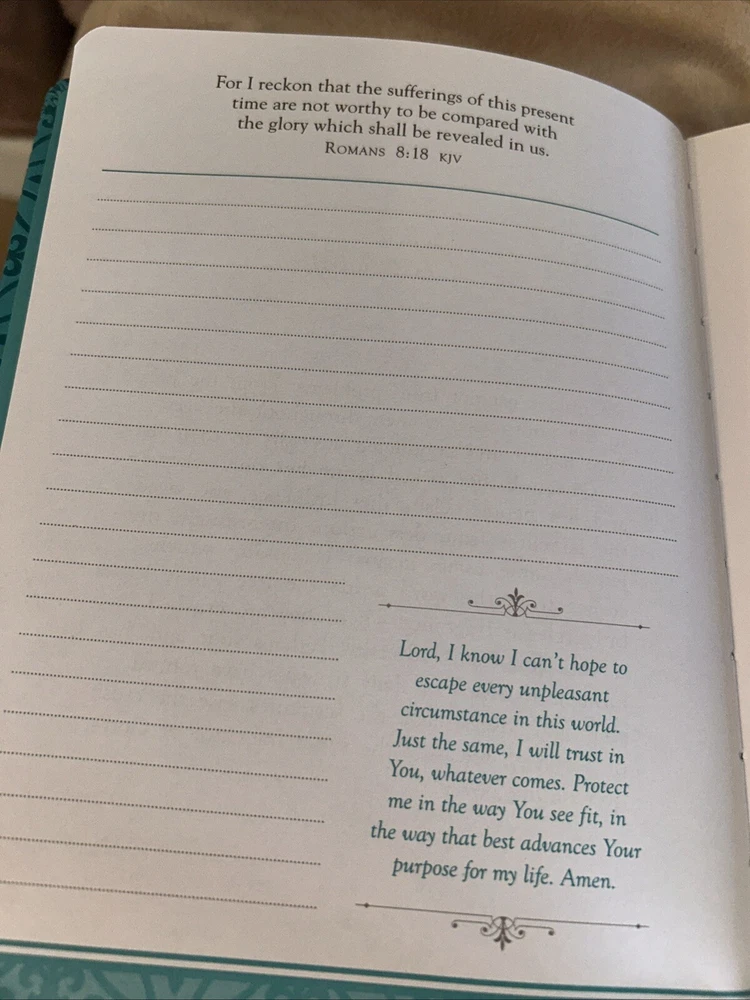 For I reckon that the sufferings of this present
time are not worthy to be compared with
the glory which shall be revealed in us.
Romans 8:18 KJV
Lord, I know I can't hope to
escape every unpleasant
circumstance in this world.
Just the same, I will trust in
You, whatever comes. Protect
me in the way You see fit, in
the way that best advances Your
purpose for my life. Amen.